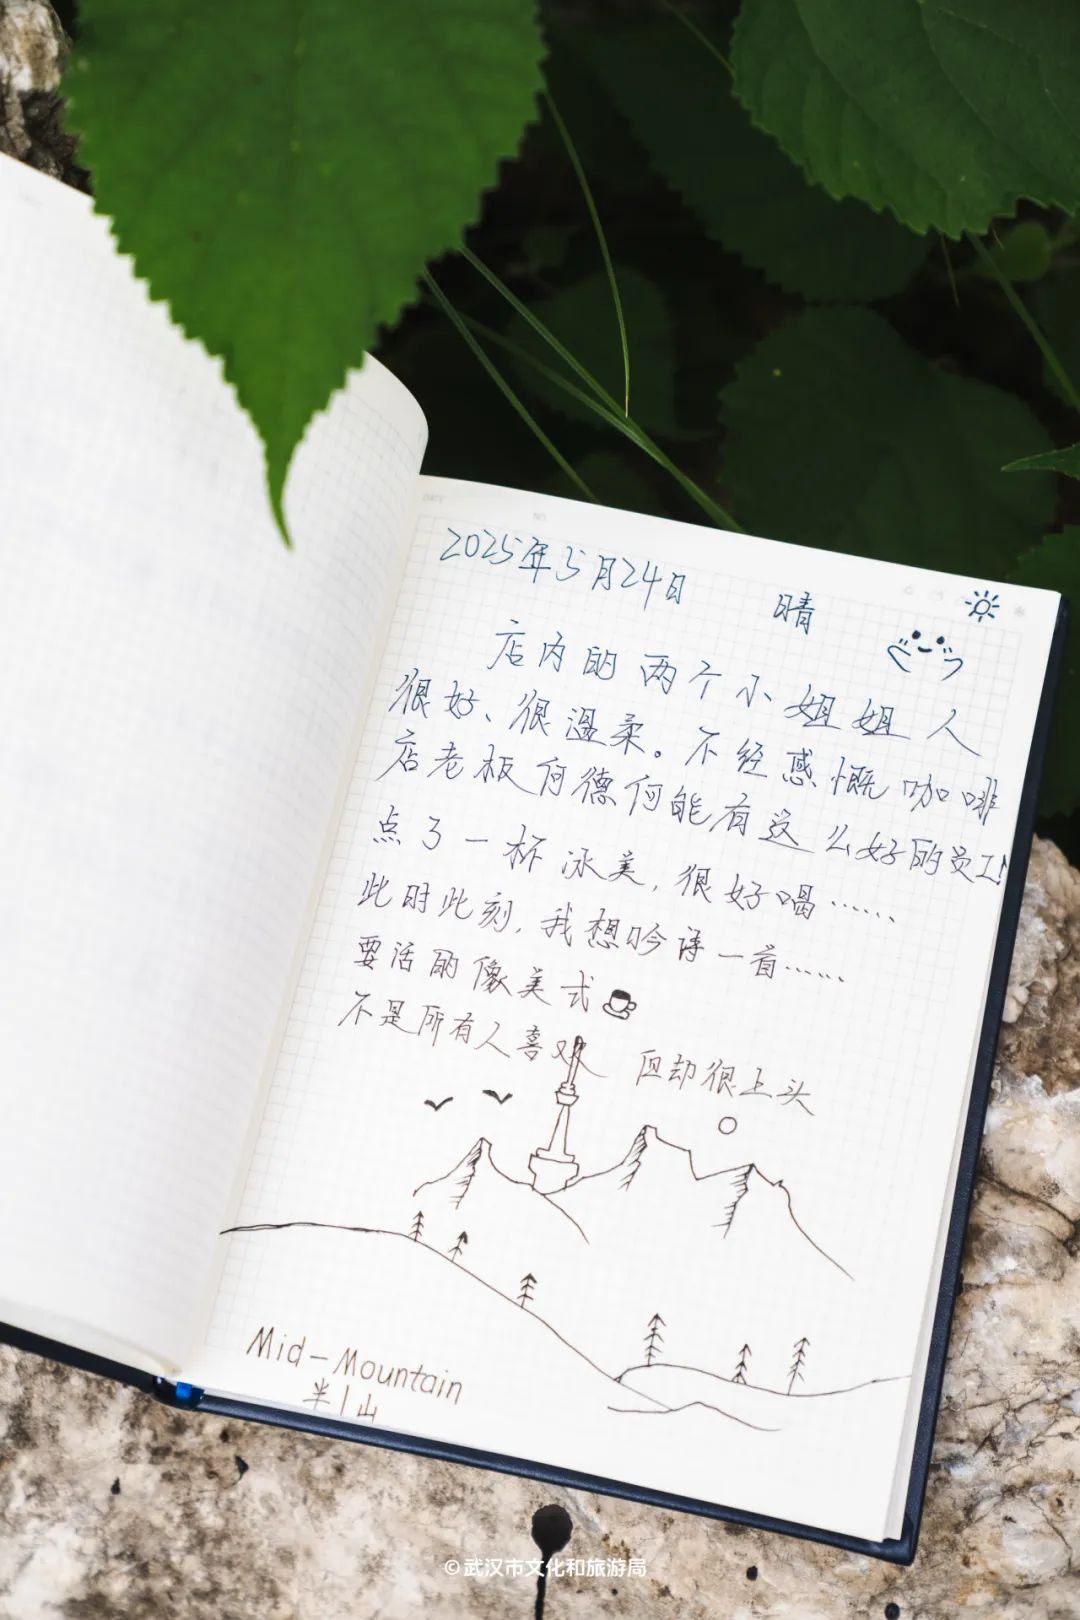 2025年5月24日 晴
店内的两个小姐姐人
很好、很温柔。不经感慨咖啡
店老板何德何能有这么好的员工!
点了一杯冰美,很好喝……
此时此刻,我想吟诗一首……
要活的像美式
不是所有人喜欢 但却很上头
Mid-Mountain
半山
©武汉市文化和旅游局